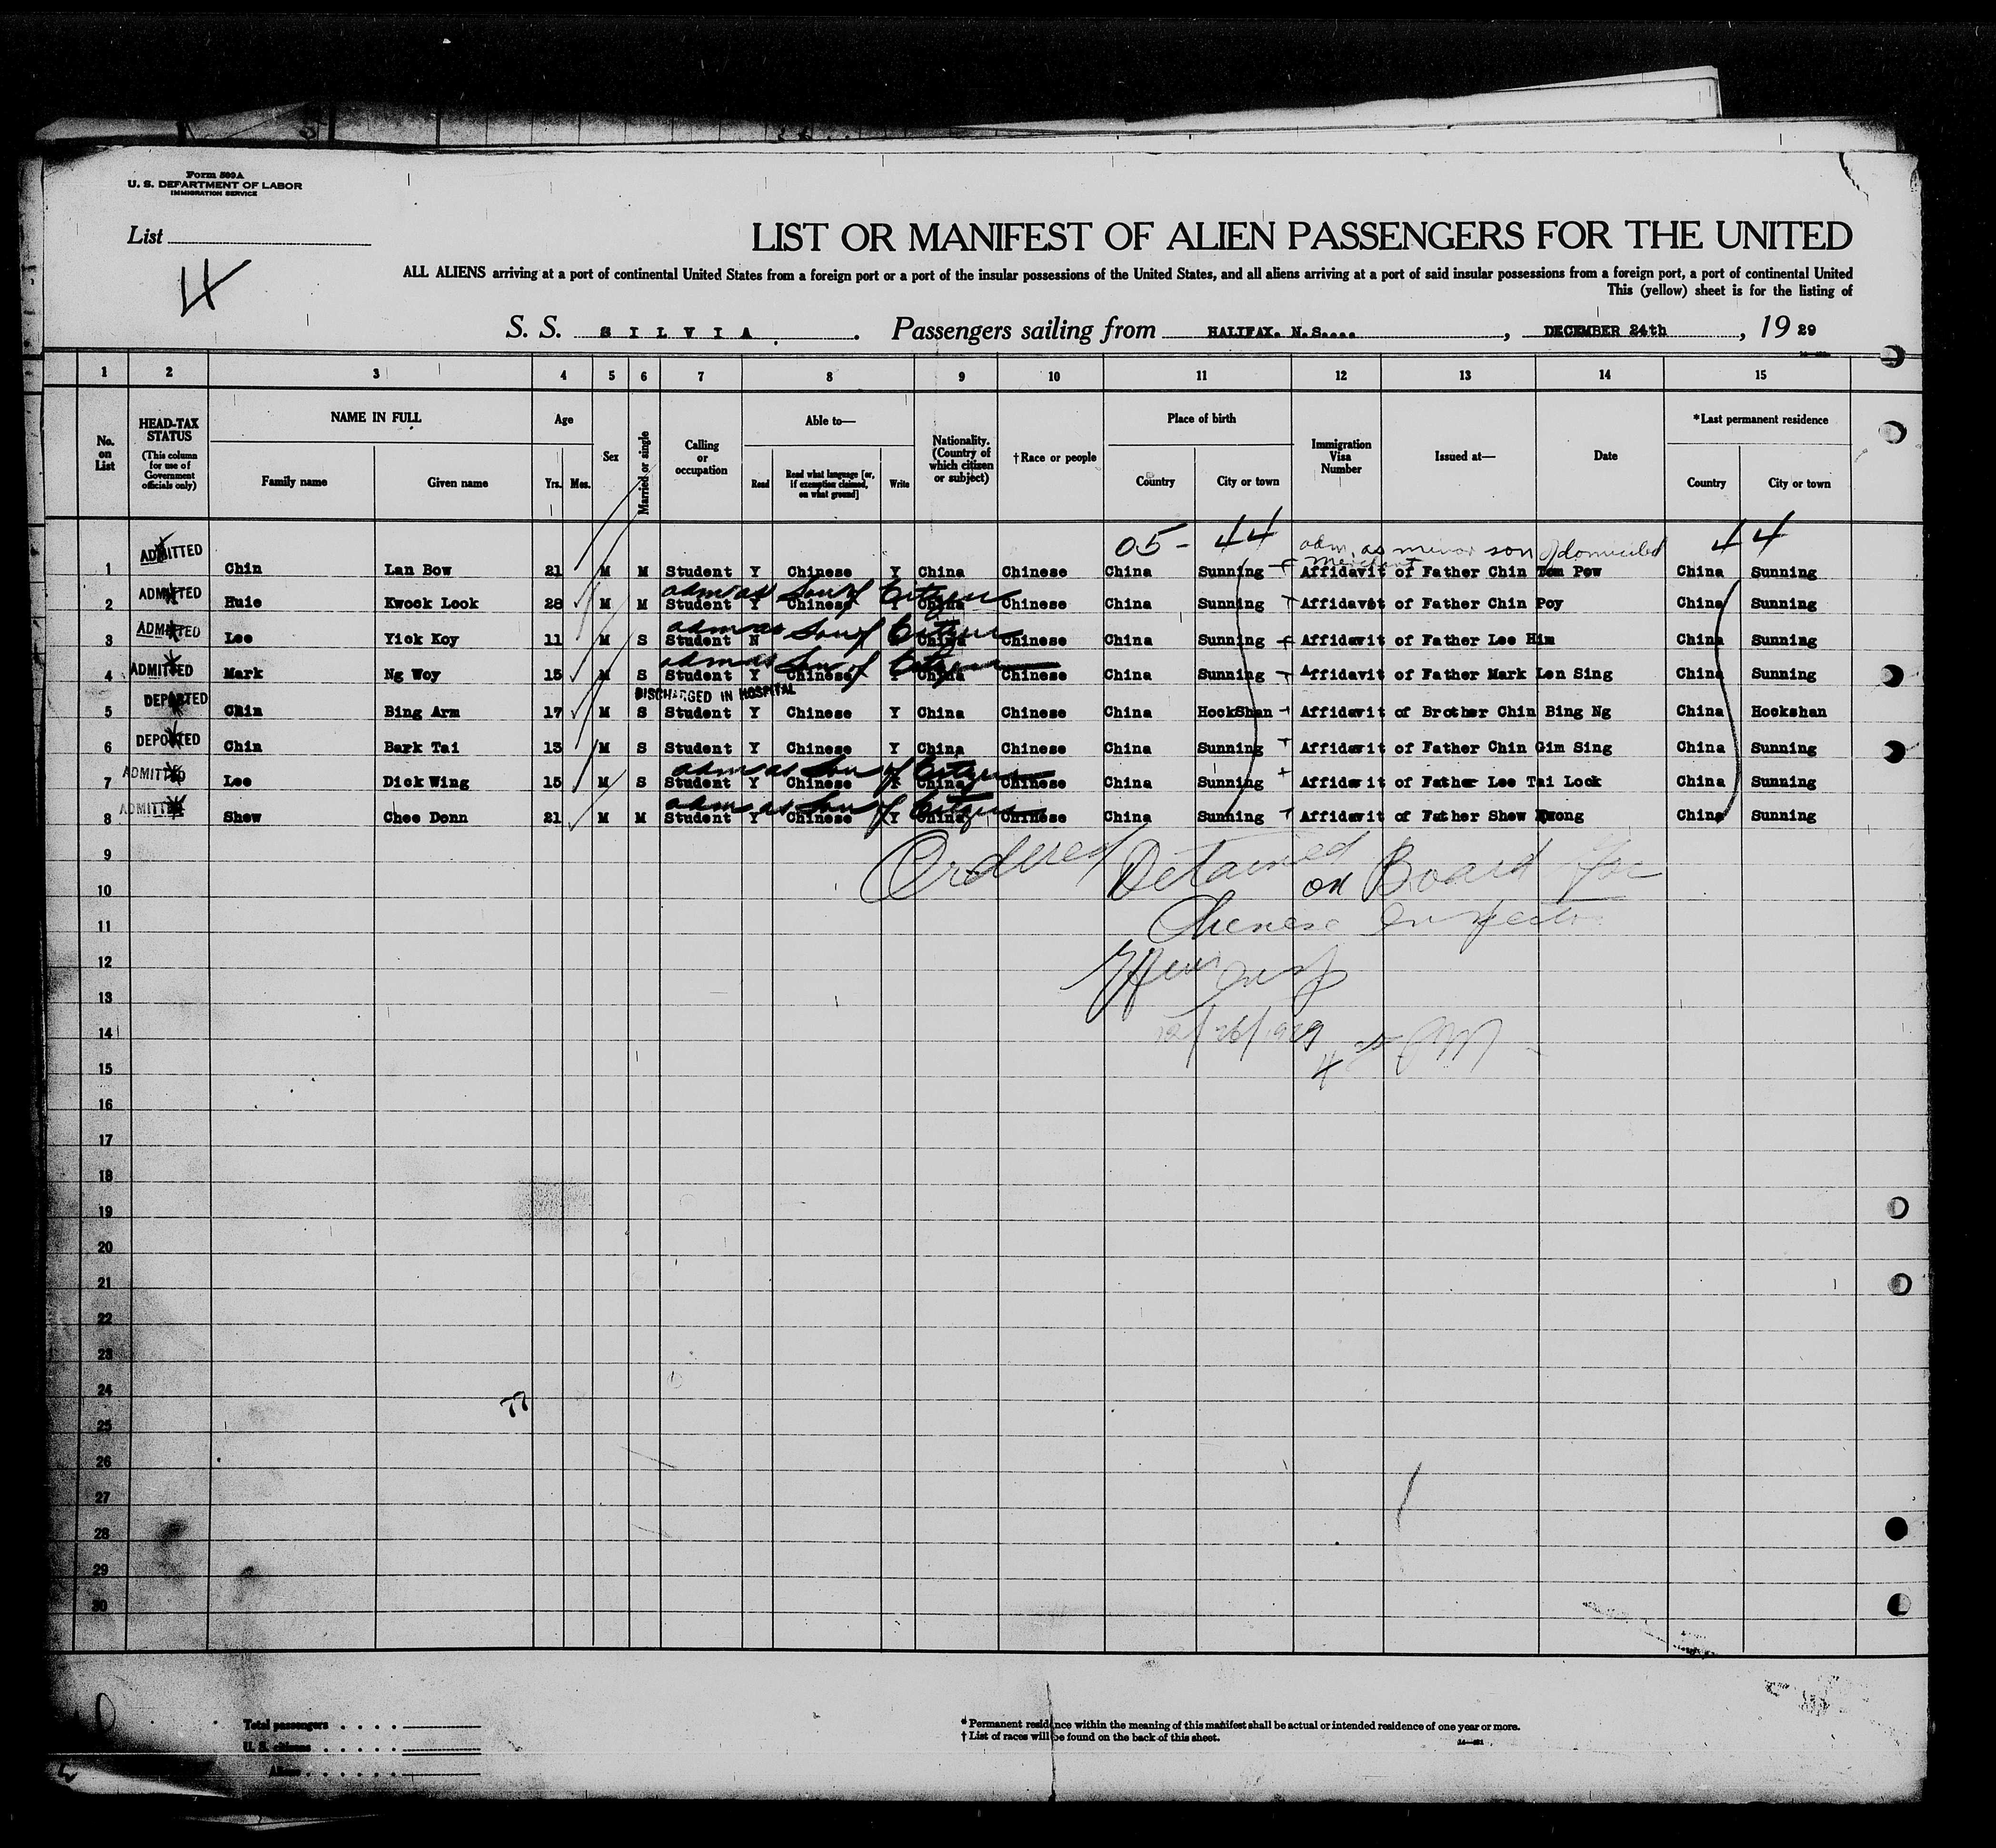 Form 500A
U. S. DEPARTMENT OF LABOR
IMMIGRATION SERVICE
List
4
LIST OR MANIFEST OF ALIEN PASSENGERS FOR THE UNITED
ALL ALIENS arriving at a port of continental United States from a foreign port or a port of the insular possessions of the United States, and all aliens arriving at a port of said insular possessions from a foreign port, a port of continental United
This (yellow) sheet is for the listing of
S. S. SILVIA. Passengers sailing from HALIFAX. N.S...., DECEMBER 24th, 19 29
1 2 3 4 5 6 7 8 9 10 11 12 13 14 15
No. on List
HEAD-TAX STATUS
(This column for use of Government officials only)
NAME IN FULL
Family name Given name
Age
Yrs. Mos.
Sex
Married or single
Calling or occupation
Able to—
Read
Read what language [or, if exemption claimed, on what ground]
Write
Nationality. (Country of which citizen or subject)
†Race or people
Place of birth
Country City or town
Immigration Visa Number
Issued at—
Date
*Last permanent residence
Country City or town
05- 44 adm. as minor son of domiciled 44
merchant
ADMITTED
1 Chin Lan Bow 21 M M Student Y Chinese Y China Chinese China Sunning Affidavit of Father Chin Tom Pow China Sunning
ADMITTED adm as Son of Citizen
2 Huie Kwock Look 28 M M Student Y Chinese Y China Chinese China Sunning Affidavit of Father Chin Poy China Sunning
ADMITTED adm as Son of Citizen
3 Lee Yick Koy 11 M S Student N China Chinese China Sunning Affidavit of Father Lee Him China Sunning
ADMITTED adm as Son of Citizen
4 Mark Ng Woy 15 M S Student Y Chinese Y China Chinese China Sunning Affidavit of Father Mark Len Sing China Sunning
DEPORTED DISCHARGED IN HOSPITAL
5 Chin Bing Arm 17 M S Student Y Chinese Y China Chinese China HockShan Affidavit of Brother Chin Bing Ng China Hockshan
DEPORTED
6 Chin Bark Tai 13 M S Student Y Chinese Y China Chinese China Sunning Affidavit of Father Chin Gim Sing China Sunning
ADMITTED adm as Son of Citizen
7 Lee Dick Wing 15 M S Student Y Chinese Y China Chinese China Sunning Affidavit of Father Lee Tai Lock China Sunning
ADMITTED adm as Son of Citizen
8 Shew Chee Donn 21 M M Student Y Chinese Y China Chinese China Sunning Affidavit of Father Shew Kwong China Sunning
9 Ordered Detained on Board for
10
11 Chinese Inspector
12
13
14 12/26/1929
15 4 PM
16
17
18
19
20
21
22
23
24
25
26
27
28
29
30
Total passengers . . . .
U. S. citizens . . . . .
Aliens . . . . . .
* Permanent residence within the meaning of this manifest shall be actual or intended residence of one year or more.
† List of races will be found on the back of this sheet.